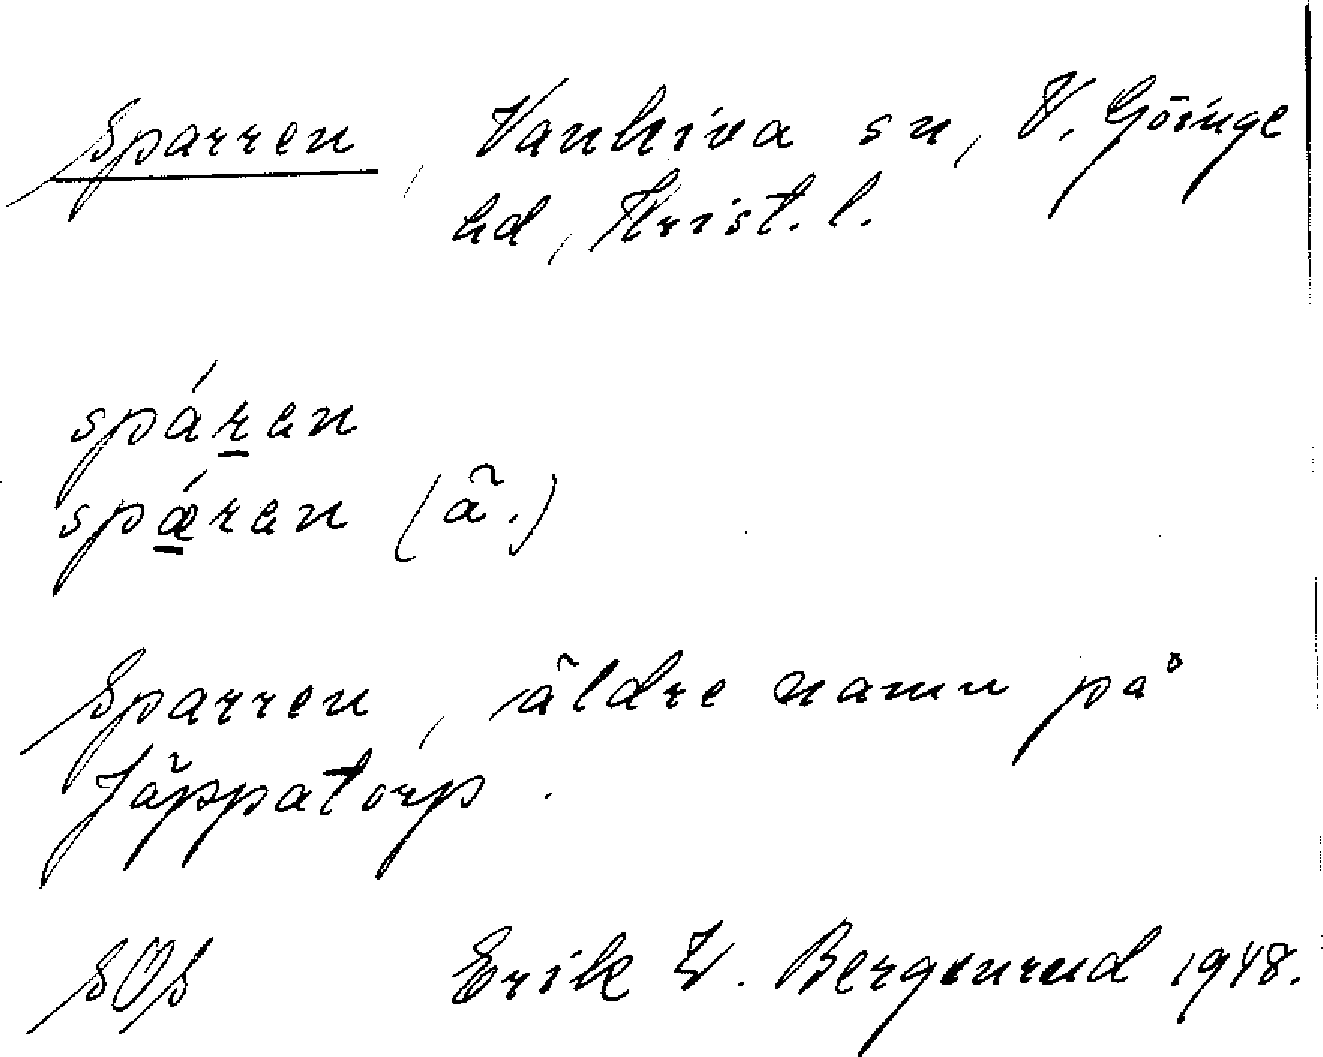 Sparren, Vankiva sn, V. Göinge
hd, Krist. l.
spáren
spáren (ä.)
Sparren, äldre namn på
Jäppatorp.
SOS Erik W. Bergenrud 1948.